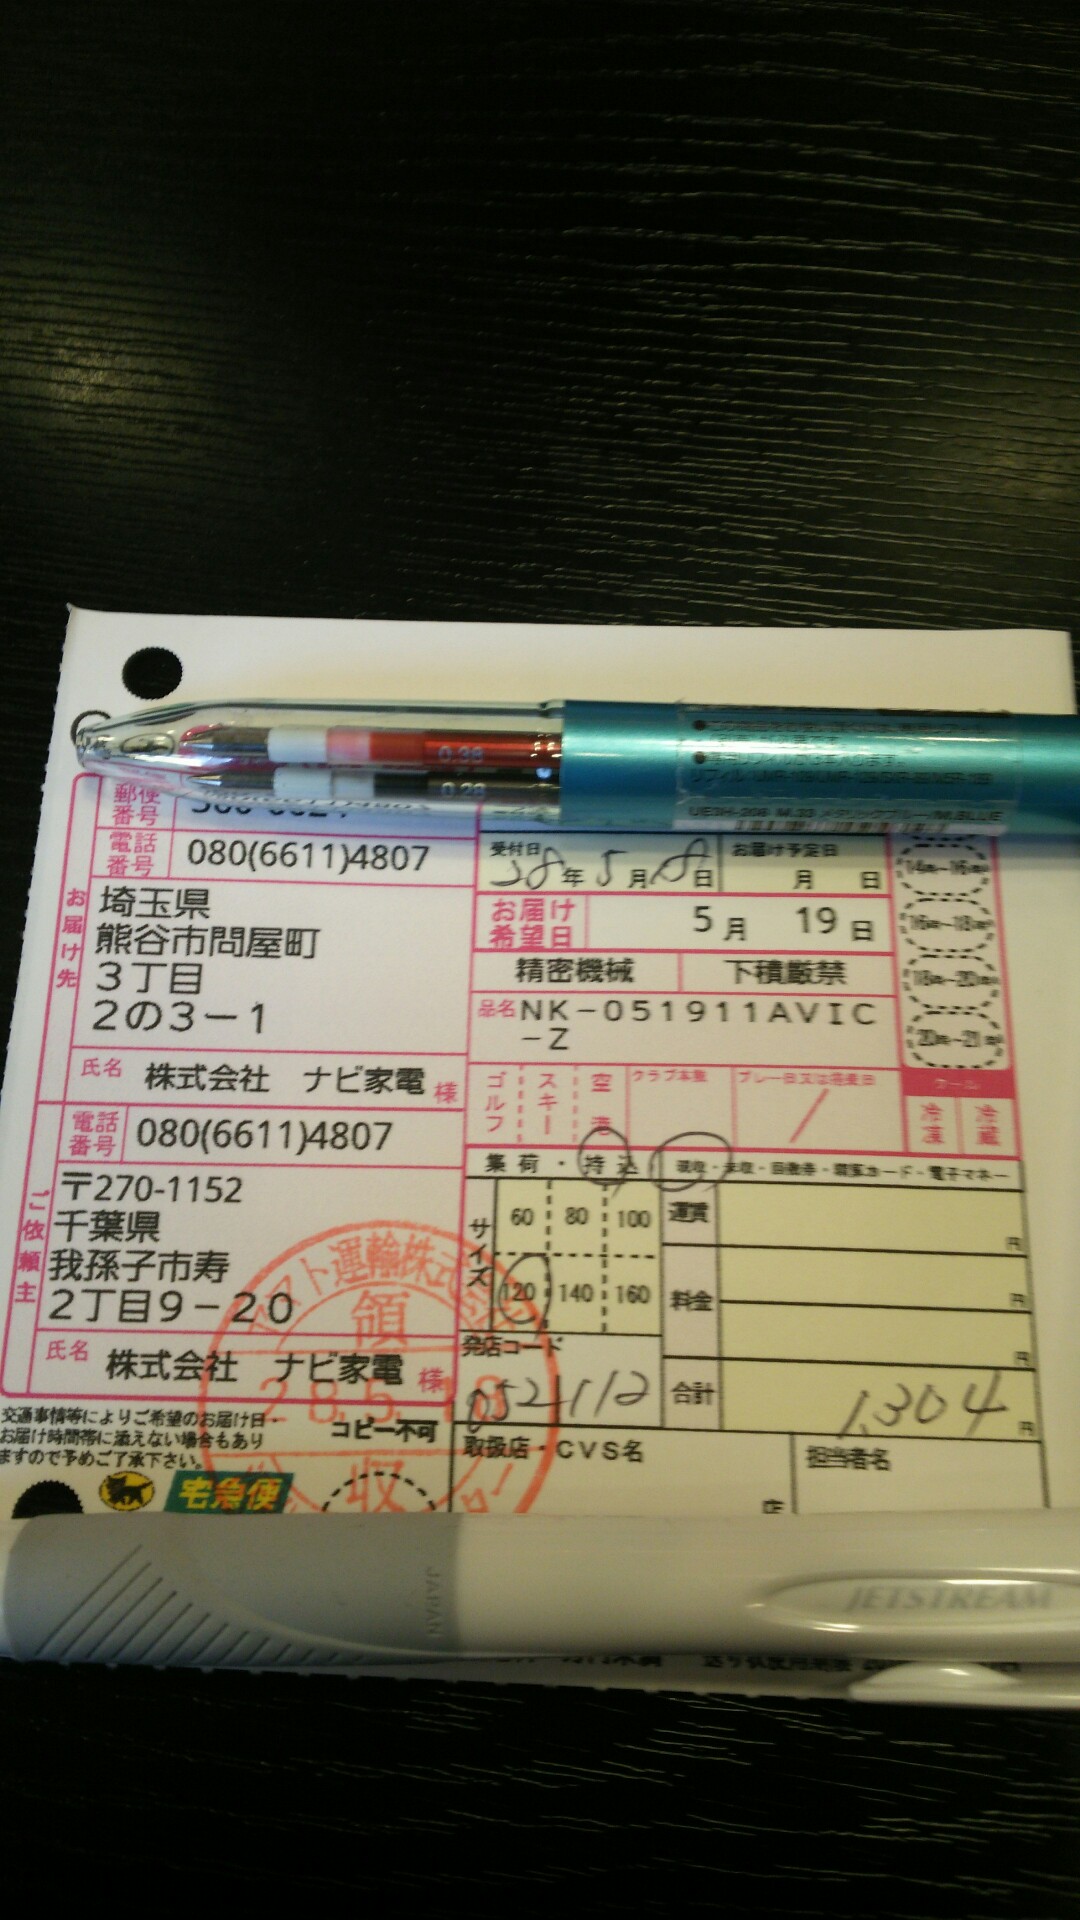 0.38
0.28
UE3H-208 M.33 メタリックブルー/M.BLUE
郵便番号
電話番号 080(6611)4807
お届け先
埼玉県
熊谷市問屋町
3丁目
2の3-1
氏名 株式会社 ナビ家電 様
電話番号 080(6611)4807
ご依頼主
〒270-1152
千葉県
我孫子市寿
2丁目9-20
氏名 株式会社 ナビ家電 様
交通事情等によりご希望のお届け日・
お届け時間帯に添えない場合もあり
ますので予めご了承下さい。
コピー不可
宅急便
受付日 28年5月18日
お届け予定日 月 日
お届け希望日 5月 19日
精密機械 下積厳禁
品名 NK-051911AVIC
-Z
ゴルフ スキー 空港 クラブ本数 プレー日又は搭乗日
14時~16時
16時~18時
18時~20時
20時~21時
クール
冷凍 冷蔵
集荷・持込 現収・未収・回数券・精算カード・電子マネー
サイズ 60 80 100
120 140 160
運賃 円
料金 円
円
合計 1,304 円
発店コード
052112
取扱店・CVS名
店
担当者名
ヤマト運輸株式会社
領
28.5.18
収
JAPAN
JETSTREAM